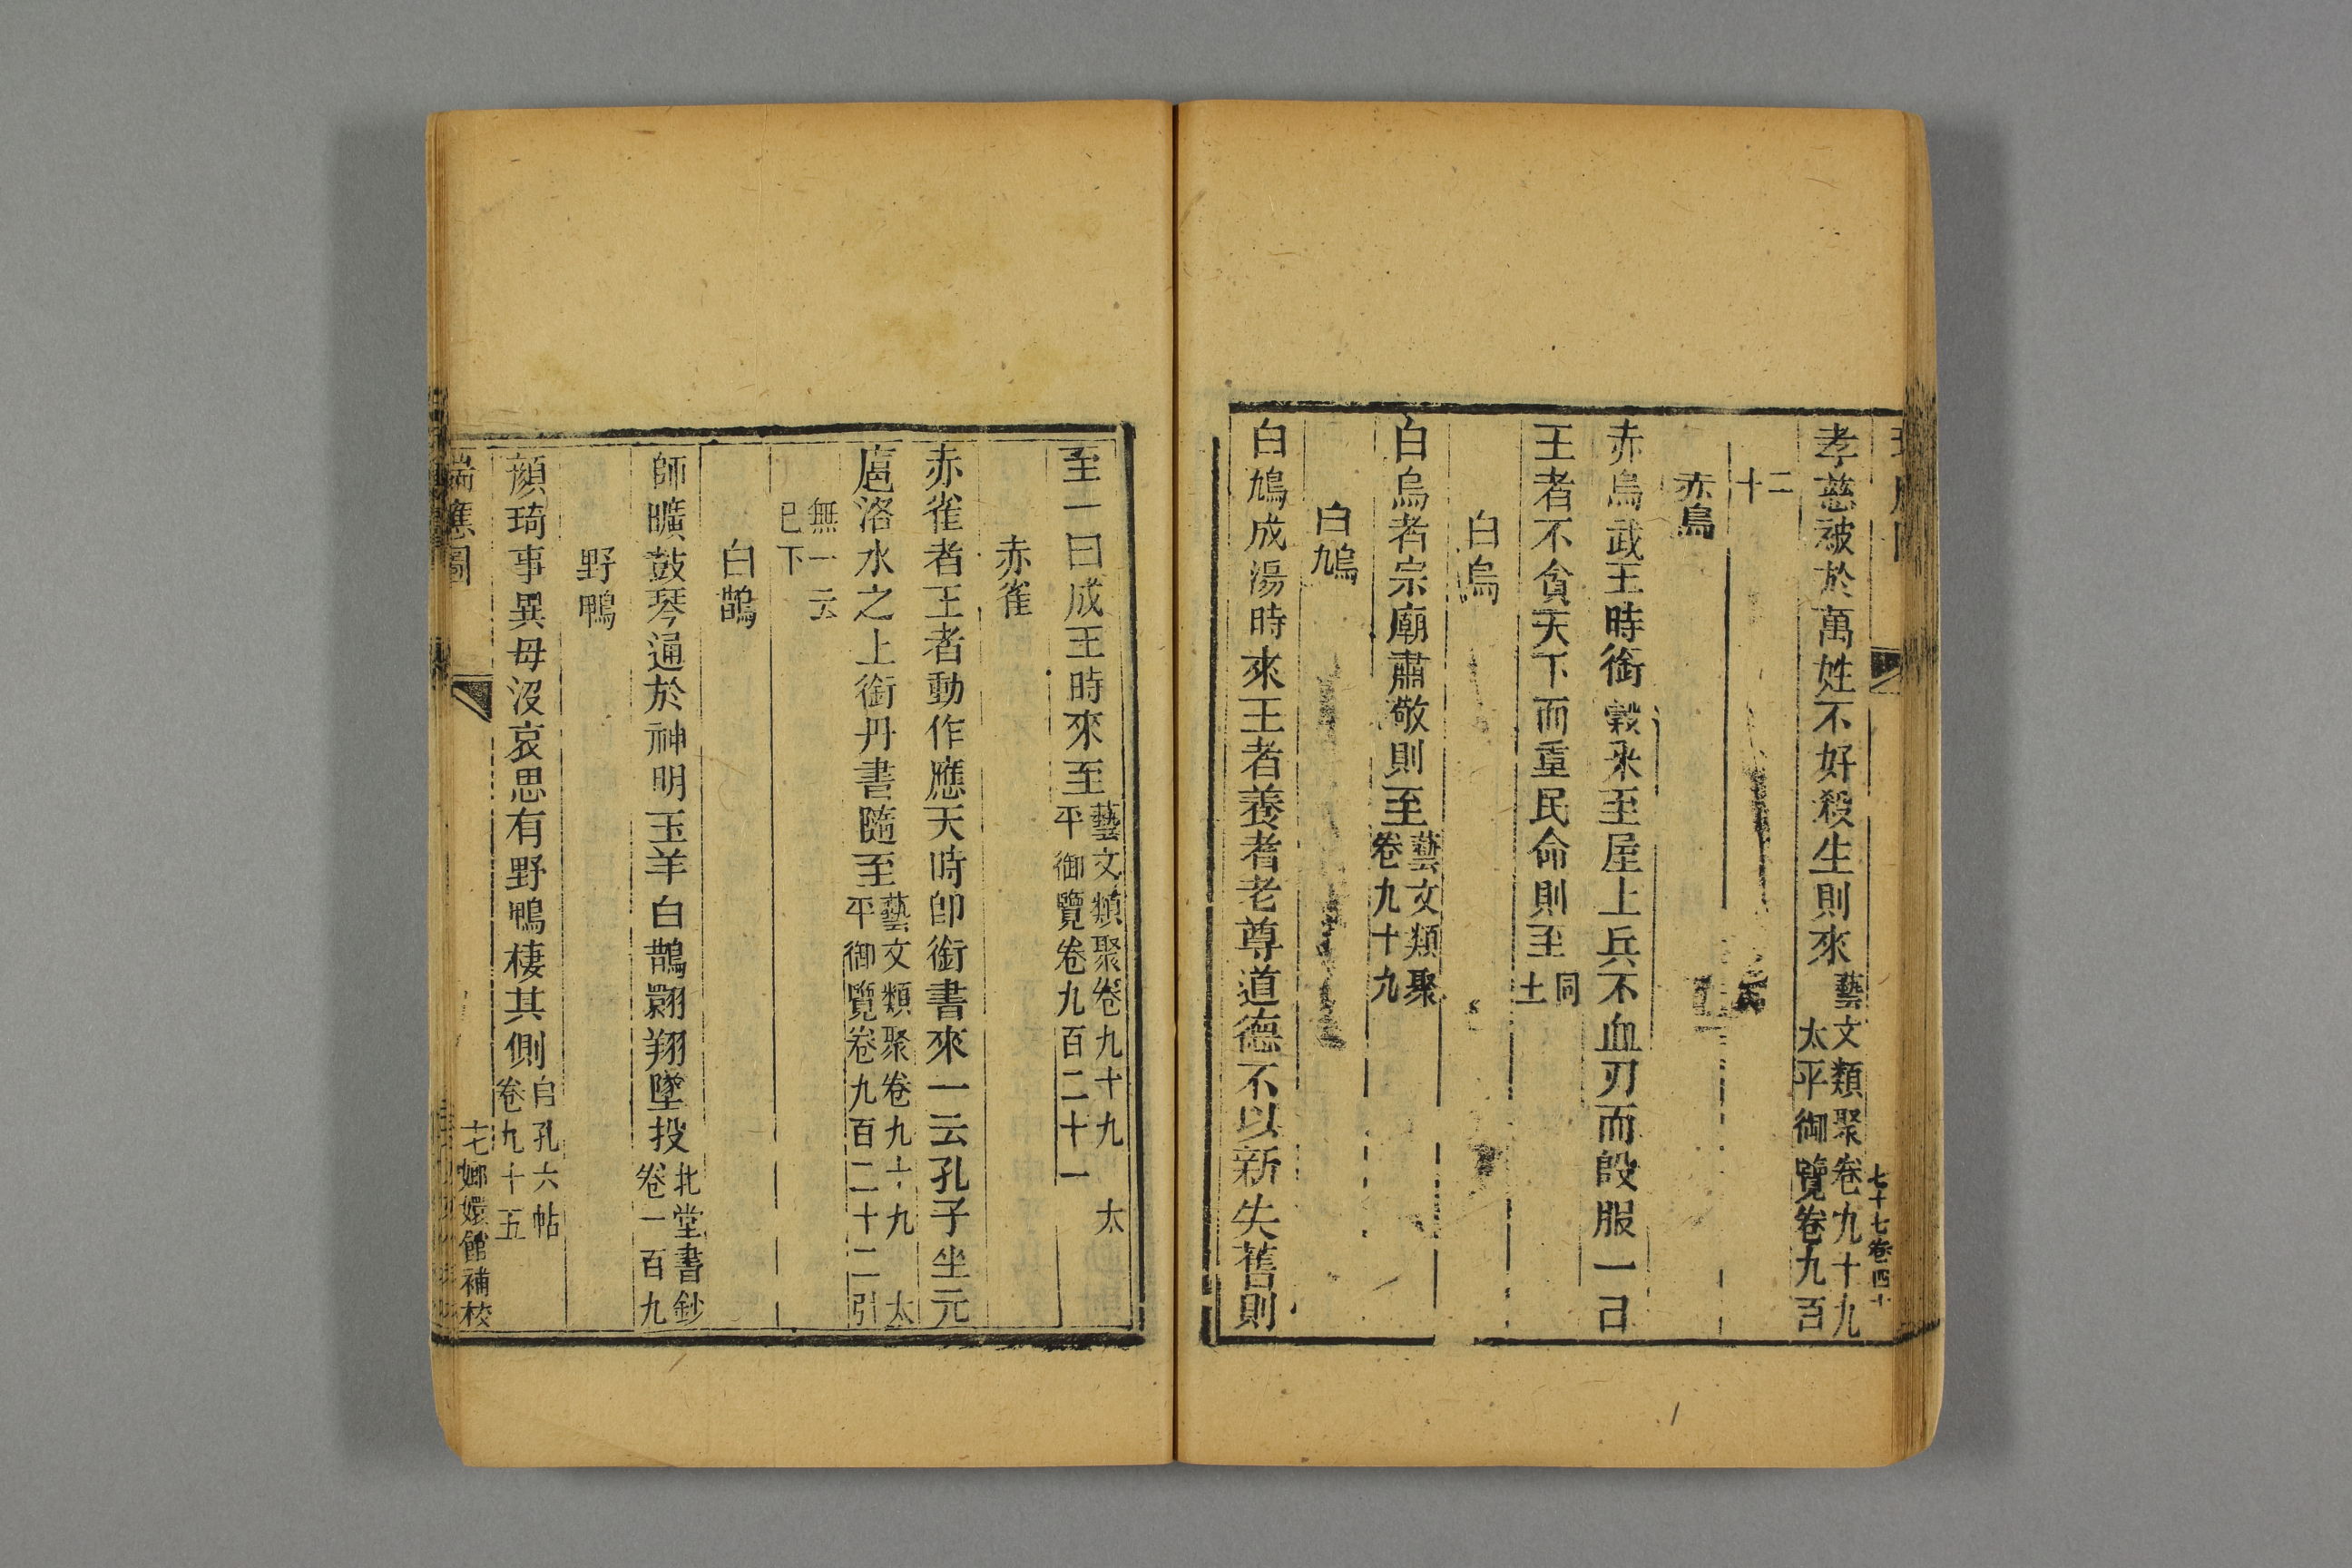 七十七卷四十
孝慈被於萬姓不好殺生則來藝文類聚卷九十九太平御覽卷九百
二十
赤烏
赤烏武王時銜穀米至屋上兵不血刃而殷服一曰
王者不貪天下而重民命則至同上
白烏
白烏者宗廟肅敬則至藝文類聚卷九十九
白鳩
白鳩成湯時來王者養耆老尊道德不以新失舊則
至一曰成王時來至藝文類聚卷九十九太平御覽卷九百二十一
赤雀
赤雀者王者動作應天時卽銜書來一云孔子坐元
扈洛水之上銜丹書隨至藝文類聚卷九十九太平御覽卷九百二十二引
無一云已下
白鵲
師曠鼓琴通於神明玉羊白鵲翾翔墜投北堂書鈔卷一百九
野鴨
顏琦事異母沒哀思有野鴨棲其側白孔六帖卷九十五
瑞應圖
十七嫏嬛館補校